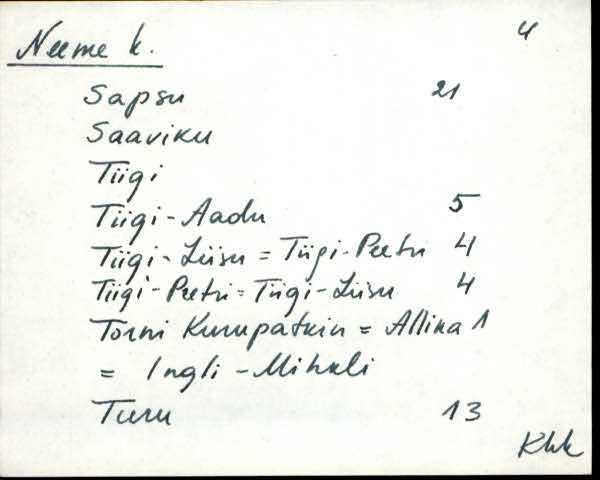 Neeme k. 4
Sapsu 21
Saaviku
Tiigi
Tiigi-Aadu 5
Tiigi-Liisu = Tiigi-Peetri 4
Tiigi-Peetri = Tiigi-Liisu 4
Torni Kurupatkin = Allika 1
= Ingli-Mihkli
Turu 13
Khk